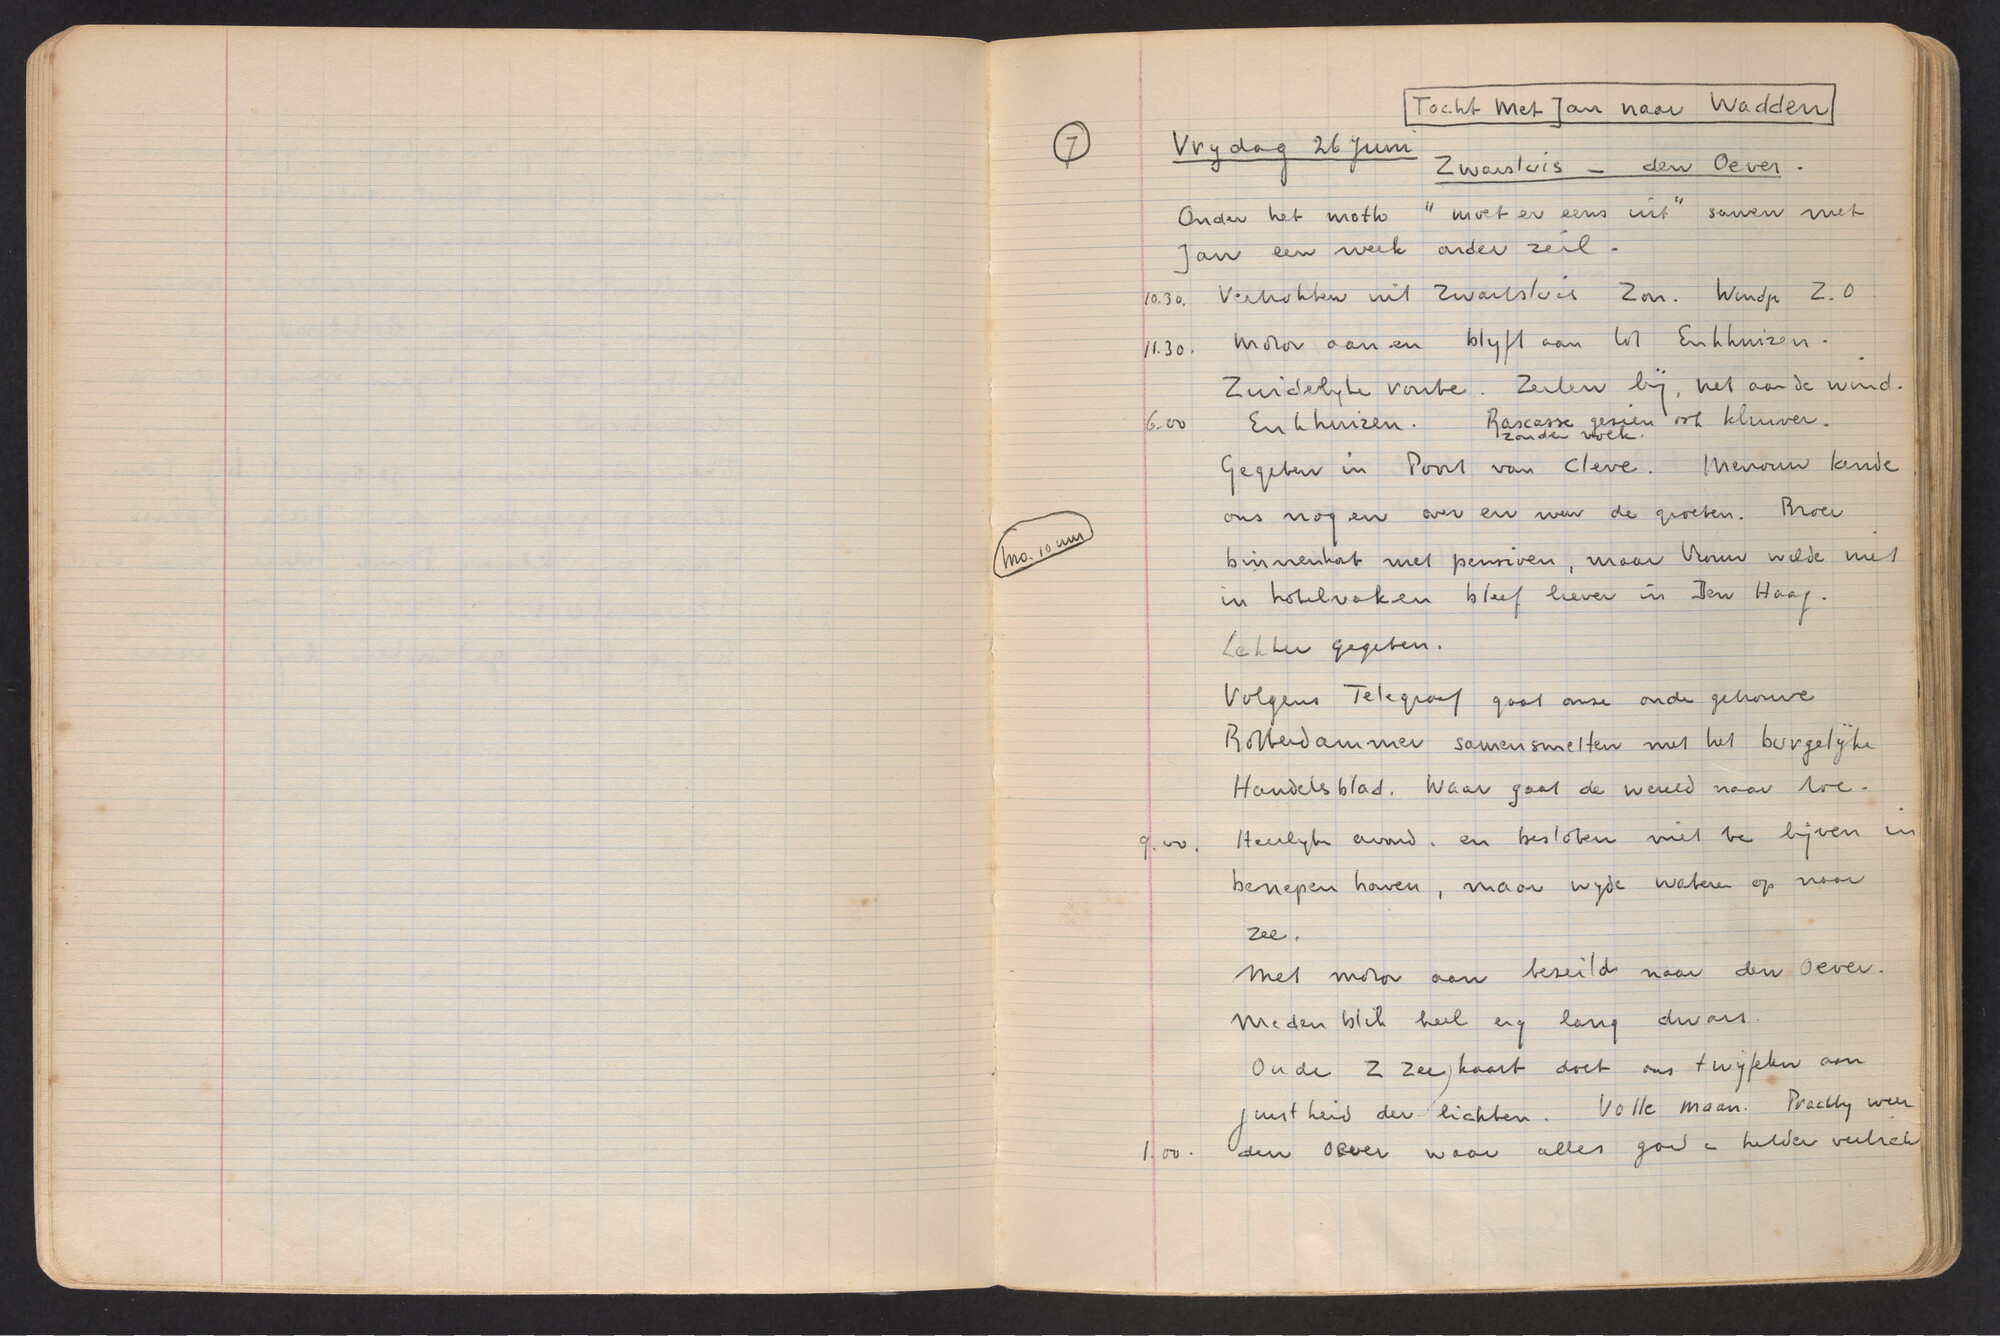 Tocht met Jan naar Wadden
7
Vrydag 26 Juni
Zwartsluis - den Oever.
Onder het motto "moet er eens uit" samen met
Jan een week onder zeil.
10.30. Vertrokken uit Zwartsluis Zon. Windje Z.O
11.30. Motor aan en blyft aan tot Enkhuizen.
Zuidelyke route. Zeilen bij, net aan de wind.
6.00 Enkhuizen. Rascasse gezien ook kluiver.
zonder volk.
Gegeten in Poort van Cleve. Mevrouw kende
ons nog en over en weer de groeten. Broer
binnenkort met pensioen, maar Vrouw wilde niet
in hotelvak en bleef liever in Den Haag.
mo. 10 uur
Lekker gegeten.
Volgens Telegraaf gaat onze oude getrouwe
Rotterdammer samensmelten met het burgelijke
Handelsblad. Waar gaat de wereld naar toe.
9.00. Heerlyke avond. en besloten niet te blijven in
benepen haven, maar wyde wateren op naar
zee.
Met motor aan bezeild naar den Oever.
Medenblik heel erg lang dwars.
Oude Z Zee kaart doet ons twijfelen aan
juistheid der lichten. Volle maan. Prachtig weer
1.00. den Oever waar alles goed - helder verlicht